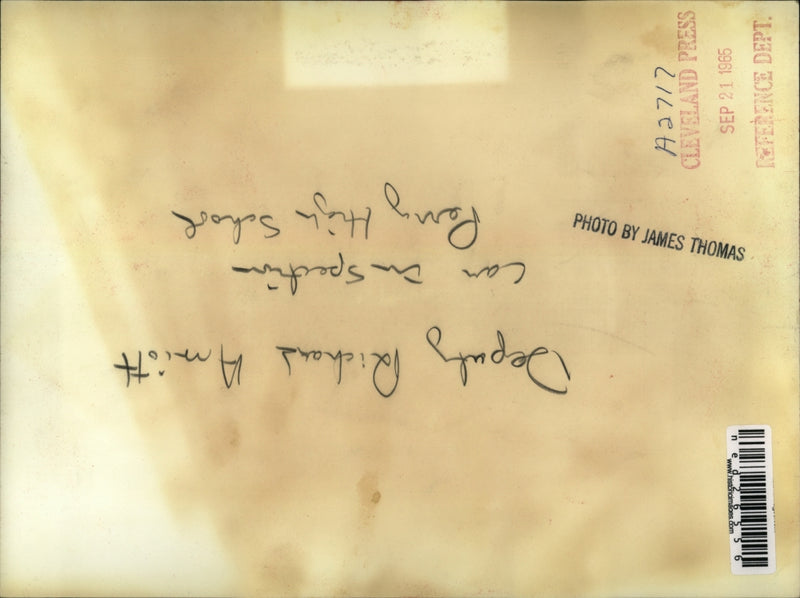 Deputy Richard Amiott
Car Inspection
Perry High School
PHOTO BY JAMES THOMAS
A2717
CLEVELAND PRESS
SEP 21 1965
REFERENCE DEPT.
www.historicimages.com
ned26556